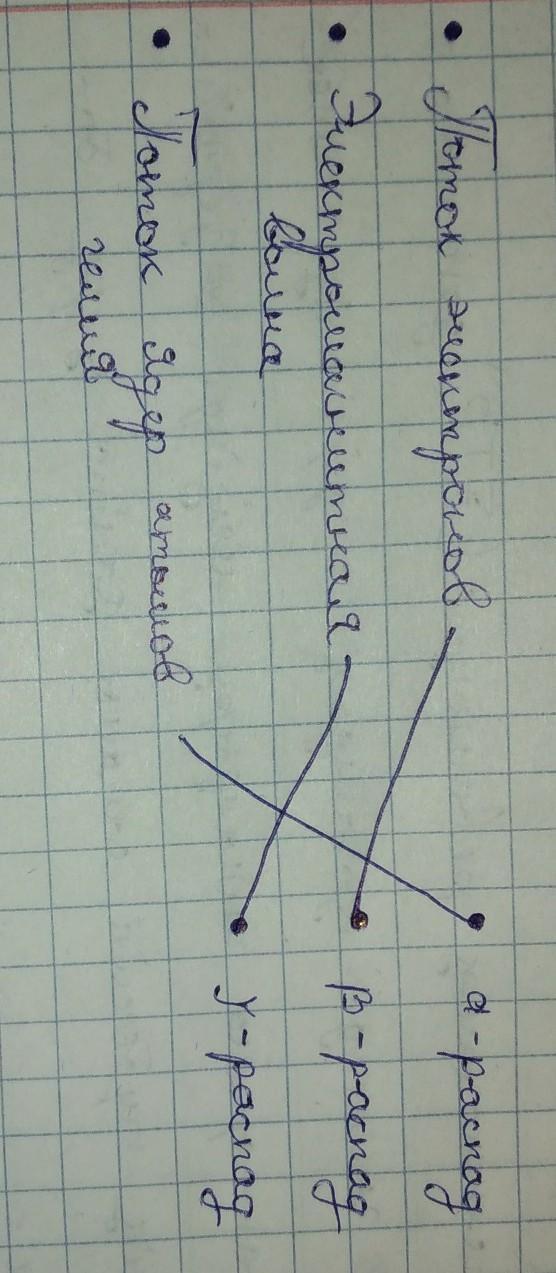 Поток электронов
Электромагнитная
волна
Поток ядер атомов
гелия
α-распад
β-распад
γ-распад